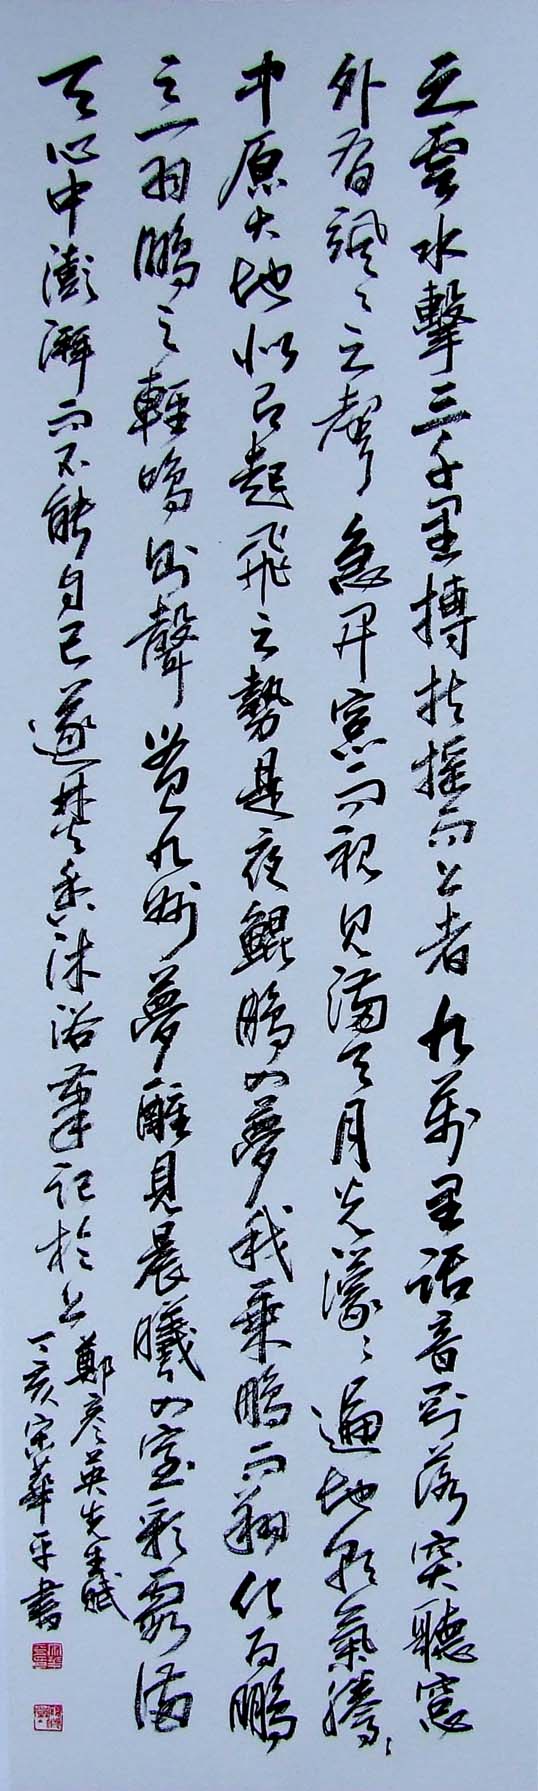 之雲水擊三千里摶扶摇而上者九萬里話音剛落突聽窓
外有颯々之聲急開窓而視見滿天月光濛々遍地彩氣騰々
中原大地似已起飛之勢是夜鯤鵬入夢我乘鵬而翔化為鵬
之一羽鵬之輕鳴出聲覽九州夢醒見晨曦入室彩霞滿
天心中澎湃而不能自已遂焚香沐浴筆記於上
鄭彦英先生賦
丁亥宋華平書